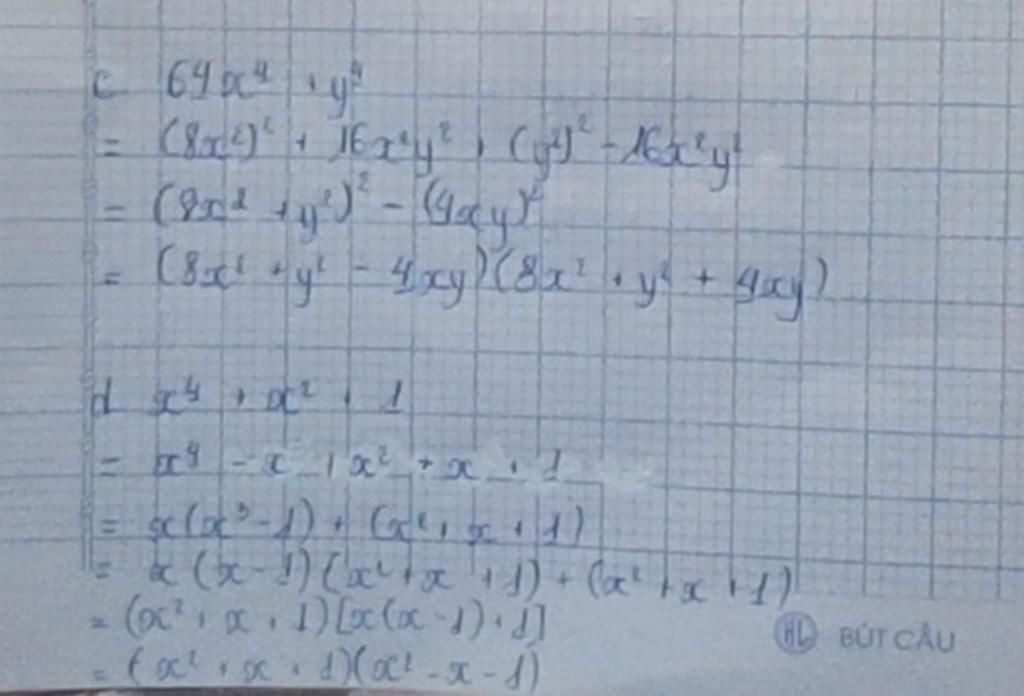 c 64x⁴ + y⁴
= (8x²)² + 16x²y² + (y²)² - 16x²y²
= (8x² + y²)² - (4xy)²
= (8x² + y² - 4xy)(8x² + y² + 4xy)
d x⁴ + x² + 1
= x⁴ - x + x² + x + 1
= x(x³ - 1) + (x² + x + 1)
= x(x - 1)(x² + x + 1) + (x² + x + 1)
= (x² + x + 1)[x(x - 1) + 1]
= (x² + x + 1)(x² - x - 1)
HL BÚT CÂU